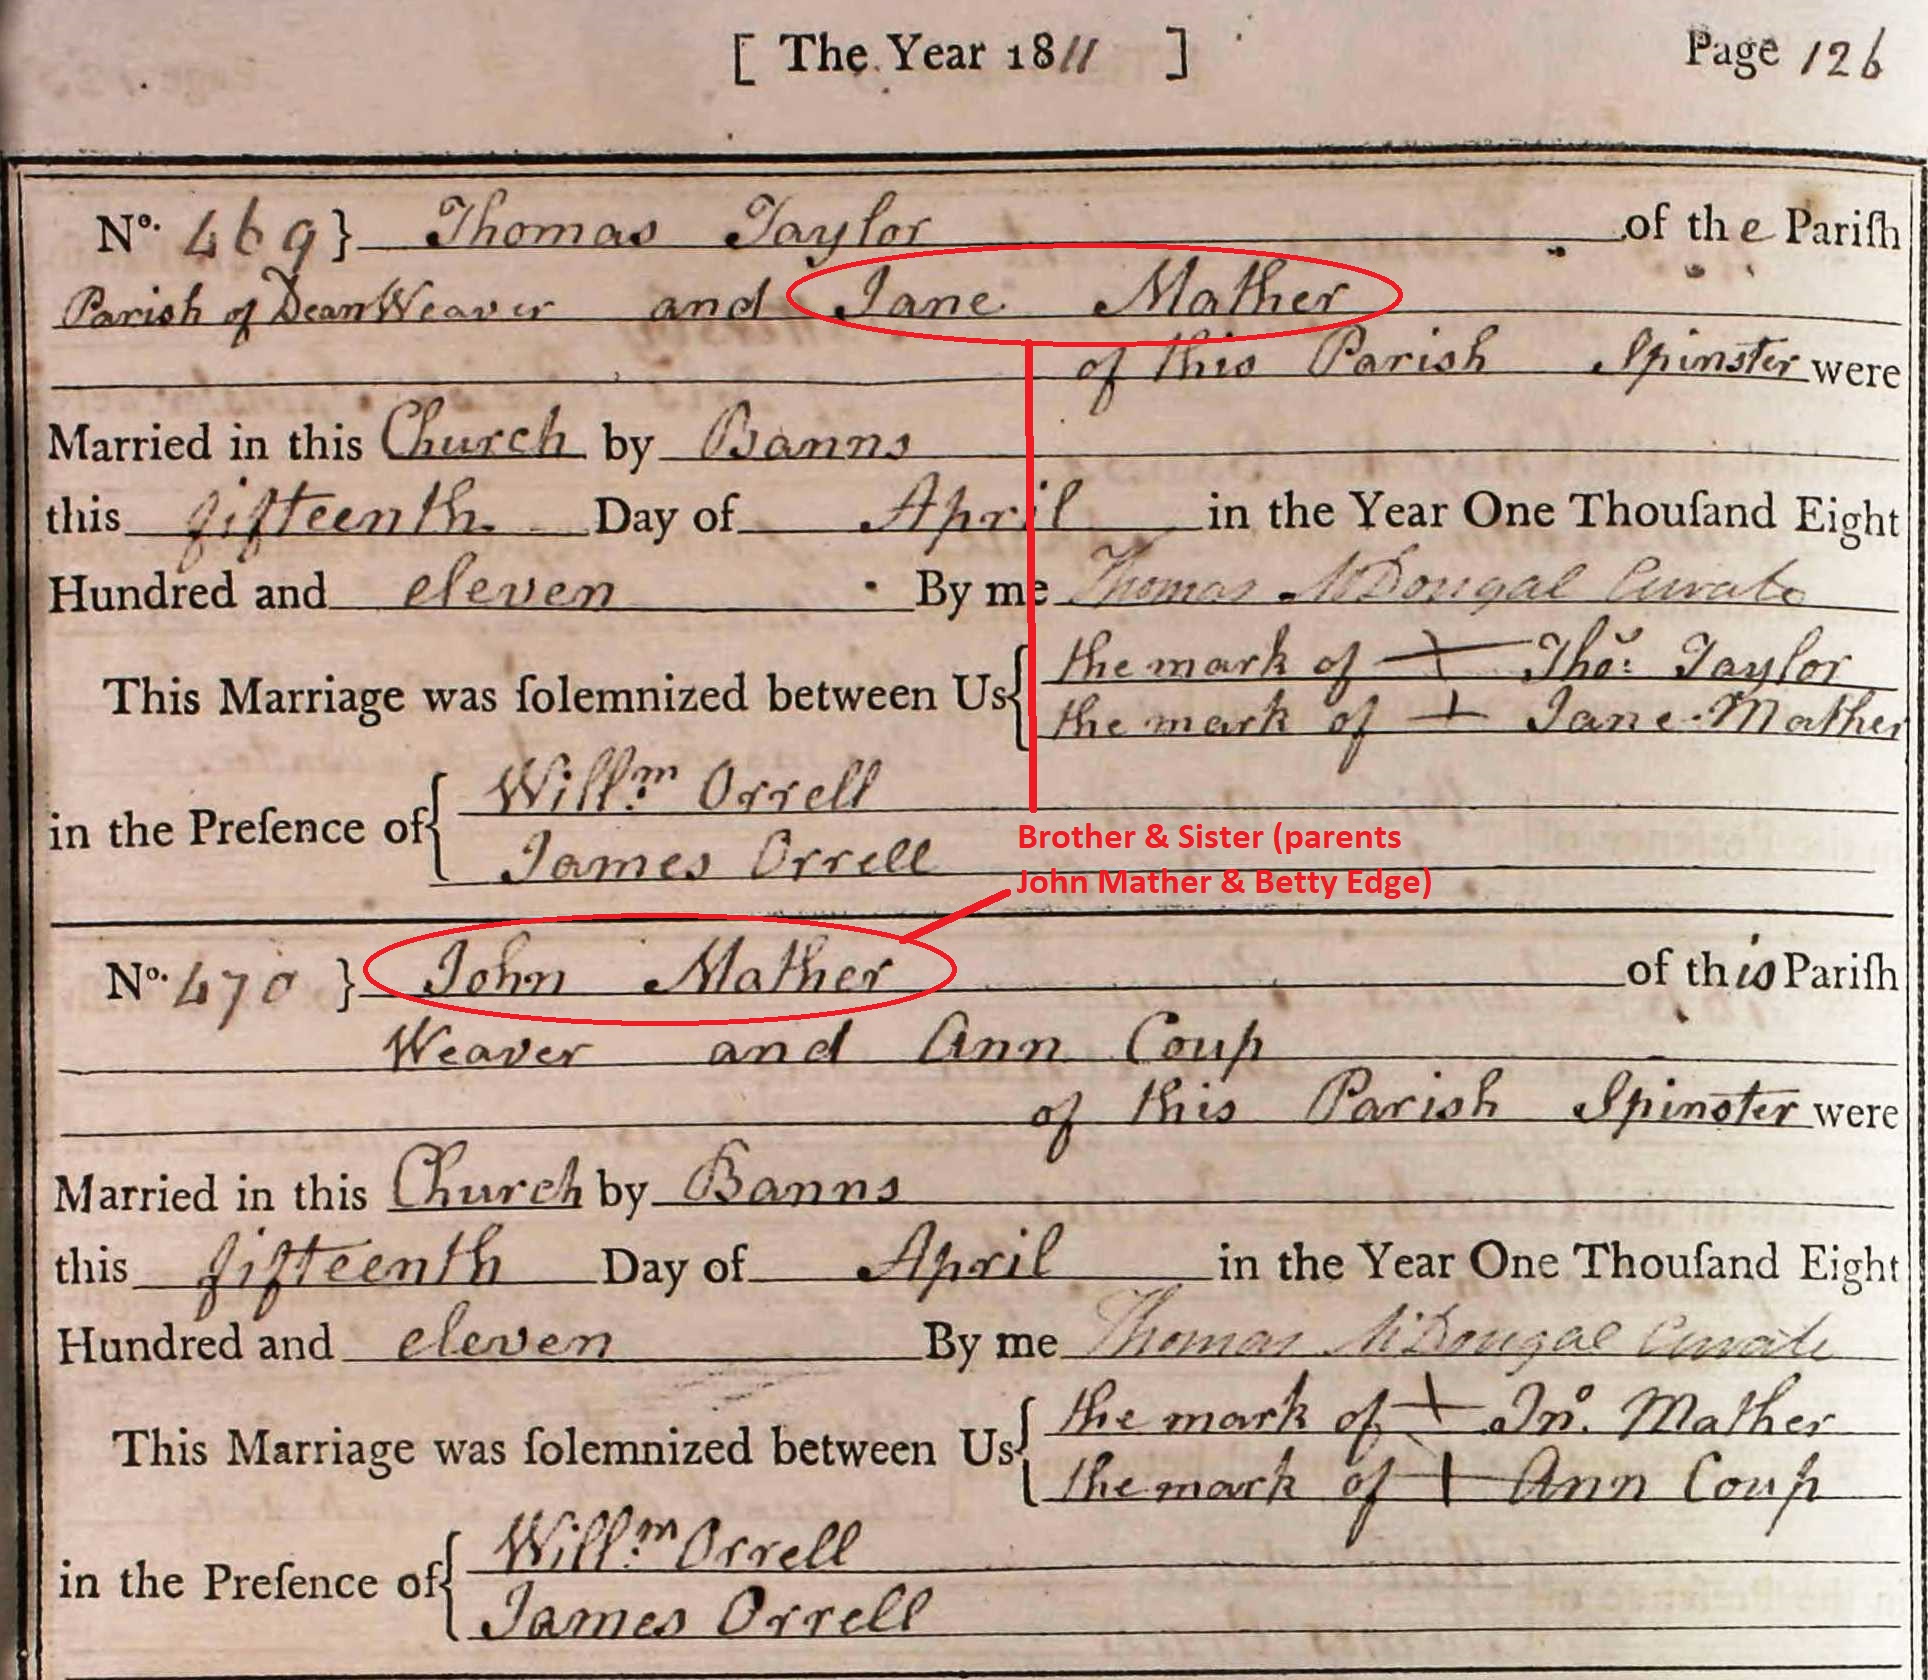 [ The Year 1811 ] Page 126
No. 469} Thomas Taylor of the Pariſh
Parish of Dean Weaver and Jane Mather
of this Parish Spinster were
Married in this Church by Banns
this fifteenth Day of April in the Year One Thouſand Eight
Hundred and eleven By me Thomas McDougal Curate
This Marriage was ſolemnized between Us{ the mark of + Thos. Taylor
the mark of + Jane Mather
in the Preſence of{ Willm. Orrell
James Orrell
Brother & Sister (parents
John Mather & Betty Edge)
No. 470 } John Mather of this Pariſh
Weaver and Ann Coup
of this Parish Spinster were
Married in this Church by Banns
this fifteenth Day of April in the Year One Thouſand Eight
Hundred and eleven By me Thomas McDougal Curate
This Marriage was ſolemnized between Us{ the mark of + Jno. Mather
the mark of + Ann Coup
in the Preſence of{ Willm. Orrell
James Orrell